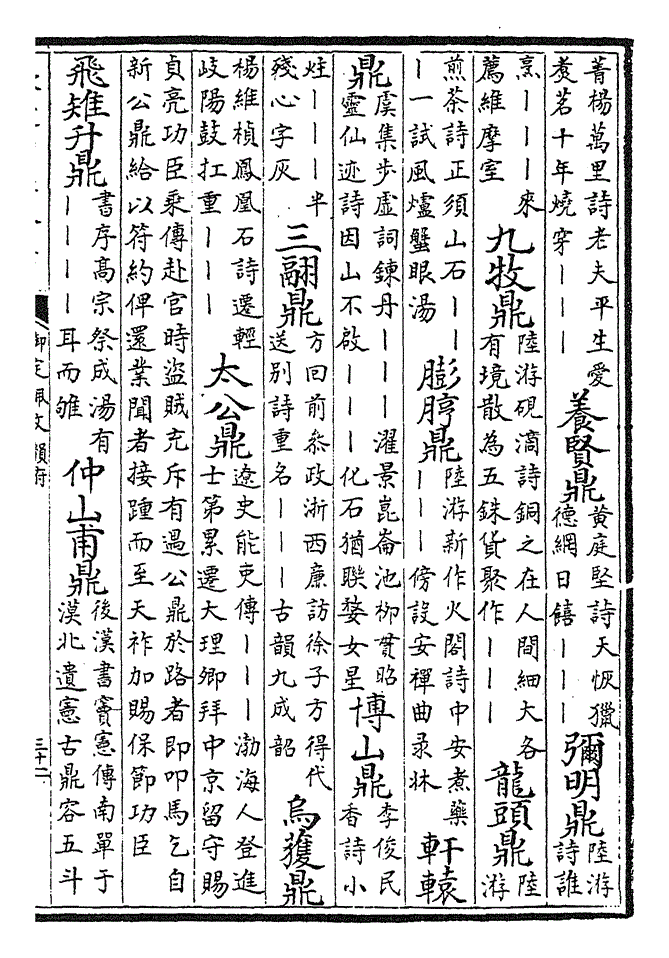 菁楊萬里詩老夫平生愛
煑茗十年燒穿丨丨丨
養賢鼎
黃庭堅詩天恢獵
德網日饎丨丨丨
彌明鼎
陸游
詩誰
烹丨丨丨來
薦維摩室
九牧鼎
陸游硯滴詩銅之在人間細大各
有境散為五銖貨聚作丨丨丨
龍頭鼎
陸
游
煎茶詩正須山石丨丨
丨一試風爐蟹眼湯
膨脝鼎
陸游新作火閣詩中安煮藥
丨丨丨傍設安禪曲录牀
軒轅
鼎
虞集步虚詞鍊丹丨丨丨濯景崑崙池柳貫昭
靈仙迹詩因山不啟丨丨丨化石猶聯婺女星
博山鼎
李俊民
香詩小
炷丨丨丨半
殘心字灰
三翮鼎
方回前叅政浙西廉訪徐子方得代
送别詩重名丨丨丨古韻九成韶
烏獲鼎
楊維楨鳳凰石詩遷輕
岐陽鼓扛重丨丨丨
太公鼎
遼史能吏傳丨丨丨渤海人登進
士第累遷大理卿拜中京留守賜
貞亮功臣乘傳赴官時盜賊充斥有遇公鼎於路者即叩馬乞自
新公鼎給以符約俾還業聞者接踵而至天祚加賜保節功臣
飛雉升鼎
書序高宗祭成湯有
丨丨丨丨耳而雊
仲山甫鼎
後漢書竇憲傳南單于
漠北遺憲古鼎容五斗
御定佩文韻府
三十二